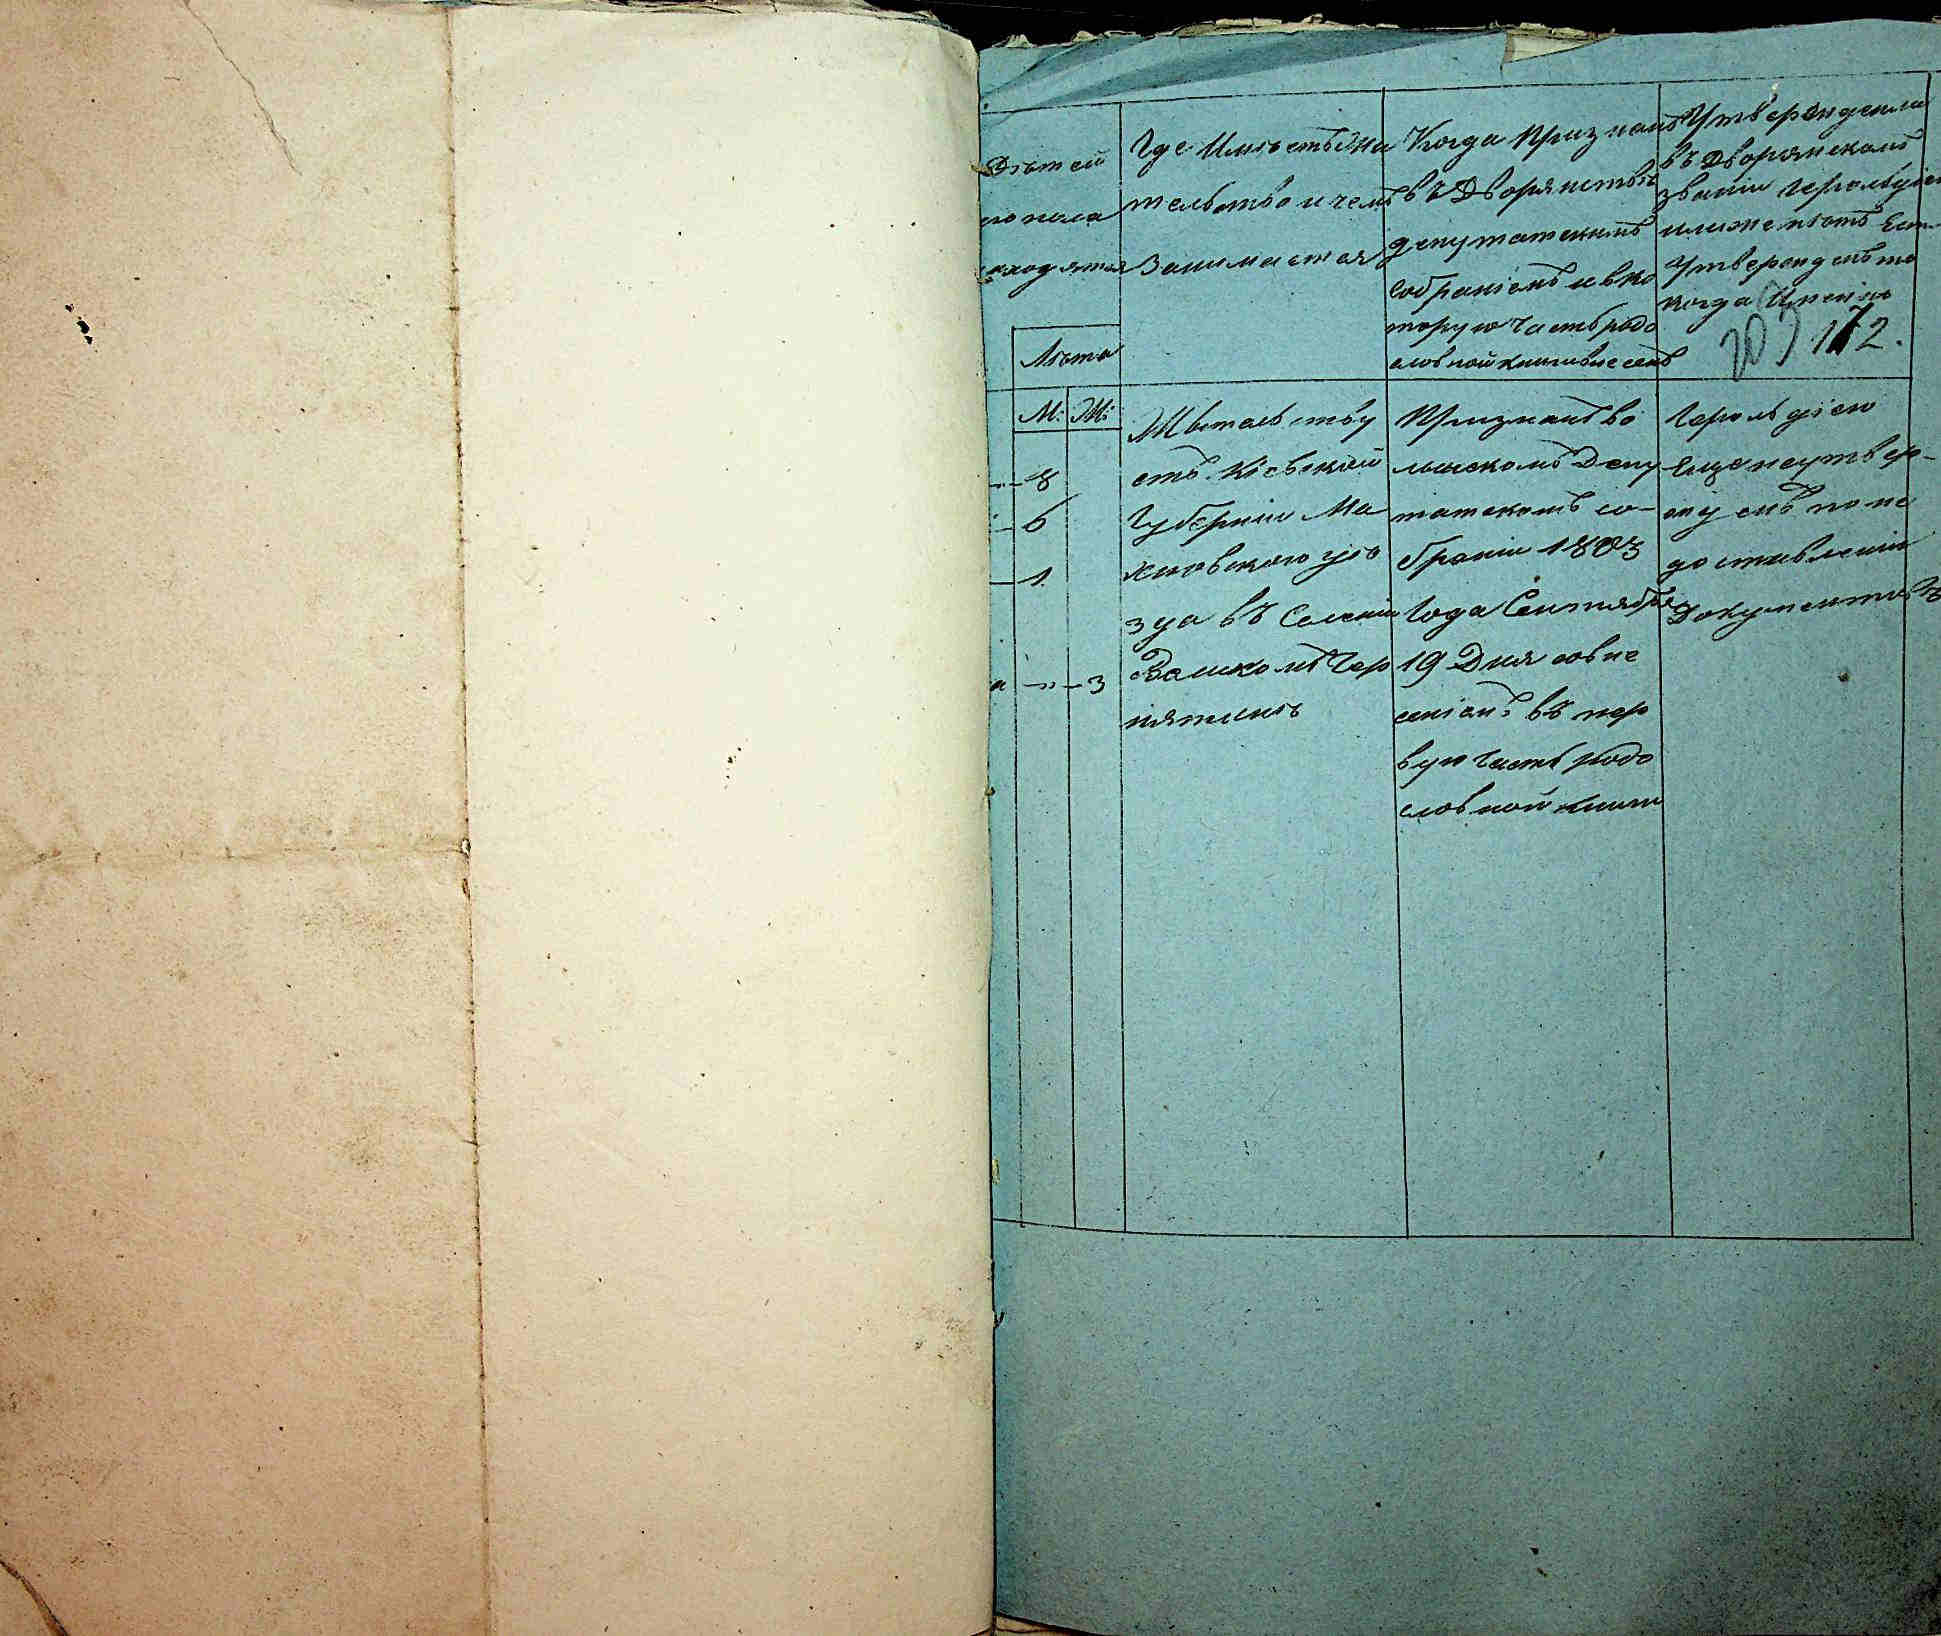 Дѣтей
его пола
находятся
Лѣта
М: Ж:
8
6
1
3
Где Имѣетъ Жи
тельство и чемъ
Занимается
Когда Признанъ
въ Дворянствѣ
депутатскимъ
Собраніемъ и в ко
торую Часть родо
словной книги внесенъ
Утвержденъ ли
въ Дворянскомъ
званіи Герольдіею
или же нѣтъ Если
Утвержденъ то
когда Имѣнно
203 172.
Жытельству
етъ Кіевской
Губерніи Ма
хновского уѣ
зда въ Селеніи
Великомъ Чер
нятинѣ
Признанъ Во
лынскомъ Депу
татскомъ со-
браніи 1803
Года Сентября
19 Дня совне
сеніемъ въ пер
вую Часть родо
словной книги
Герольдіею
Еще неутвер-
жденъ по не
доставленію
Документовъ